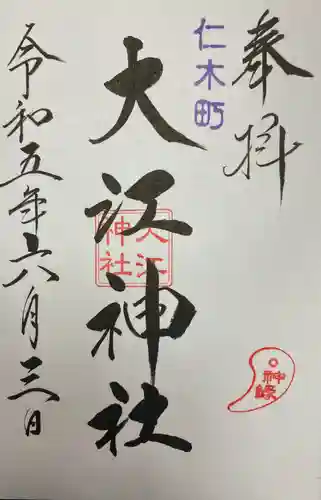 奉拝
仁木町
大江神社
大江
神社
神縁
令和五年六月三日